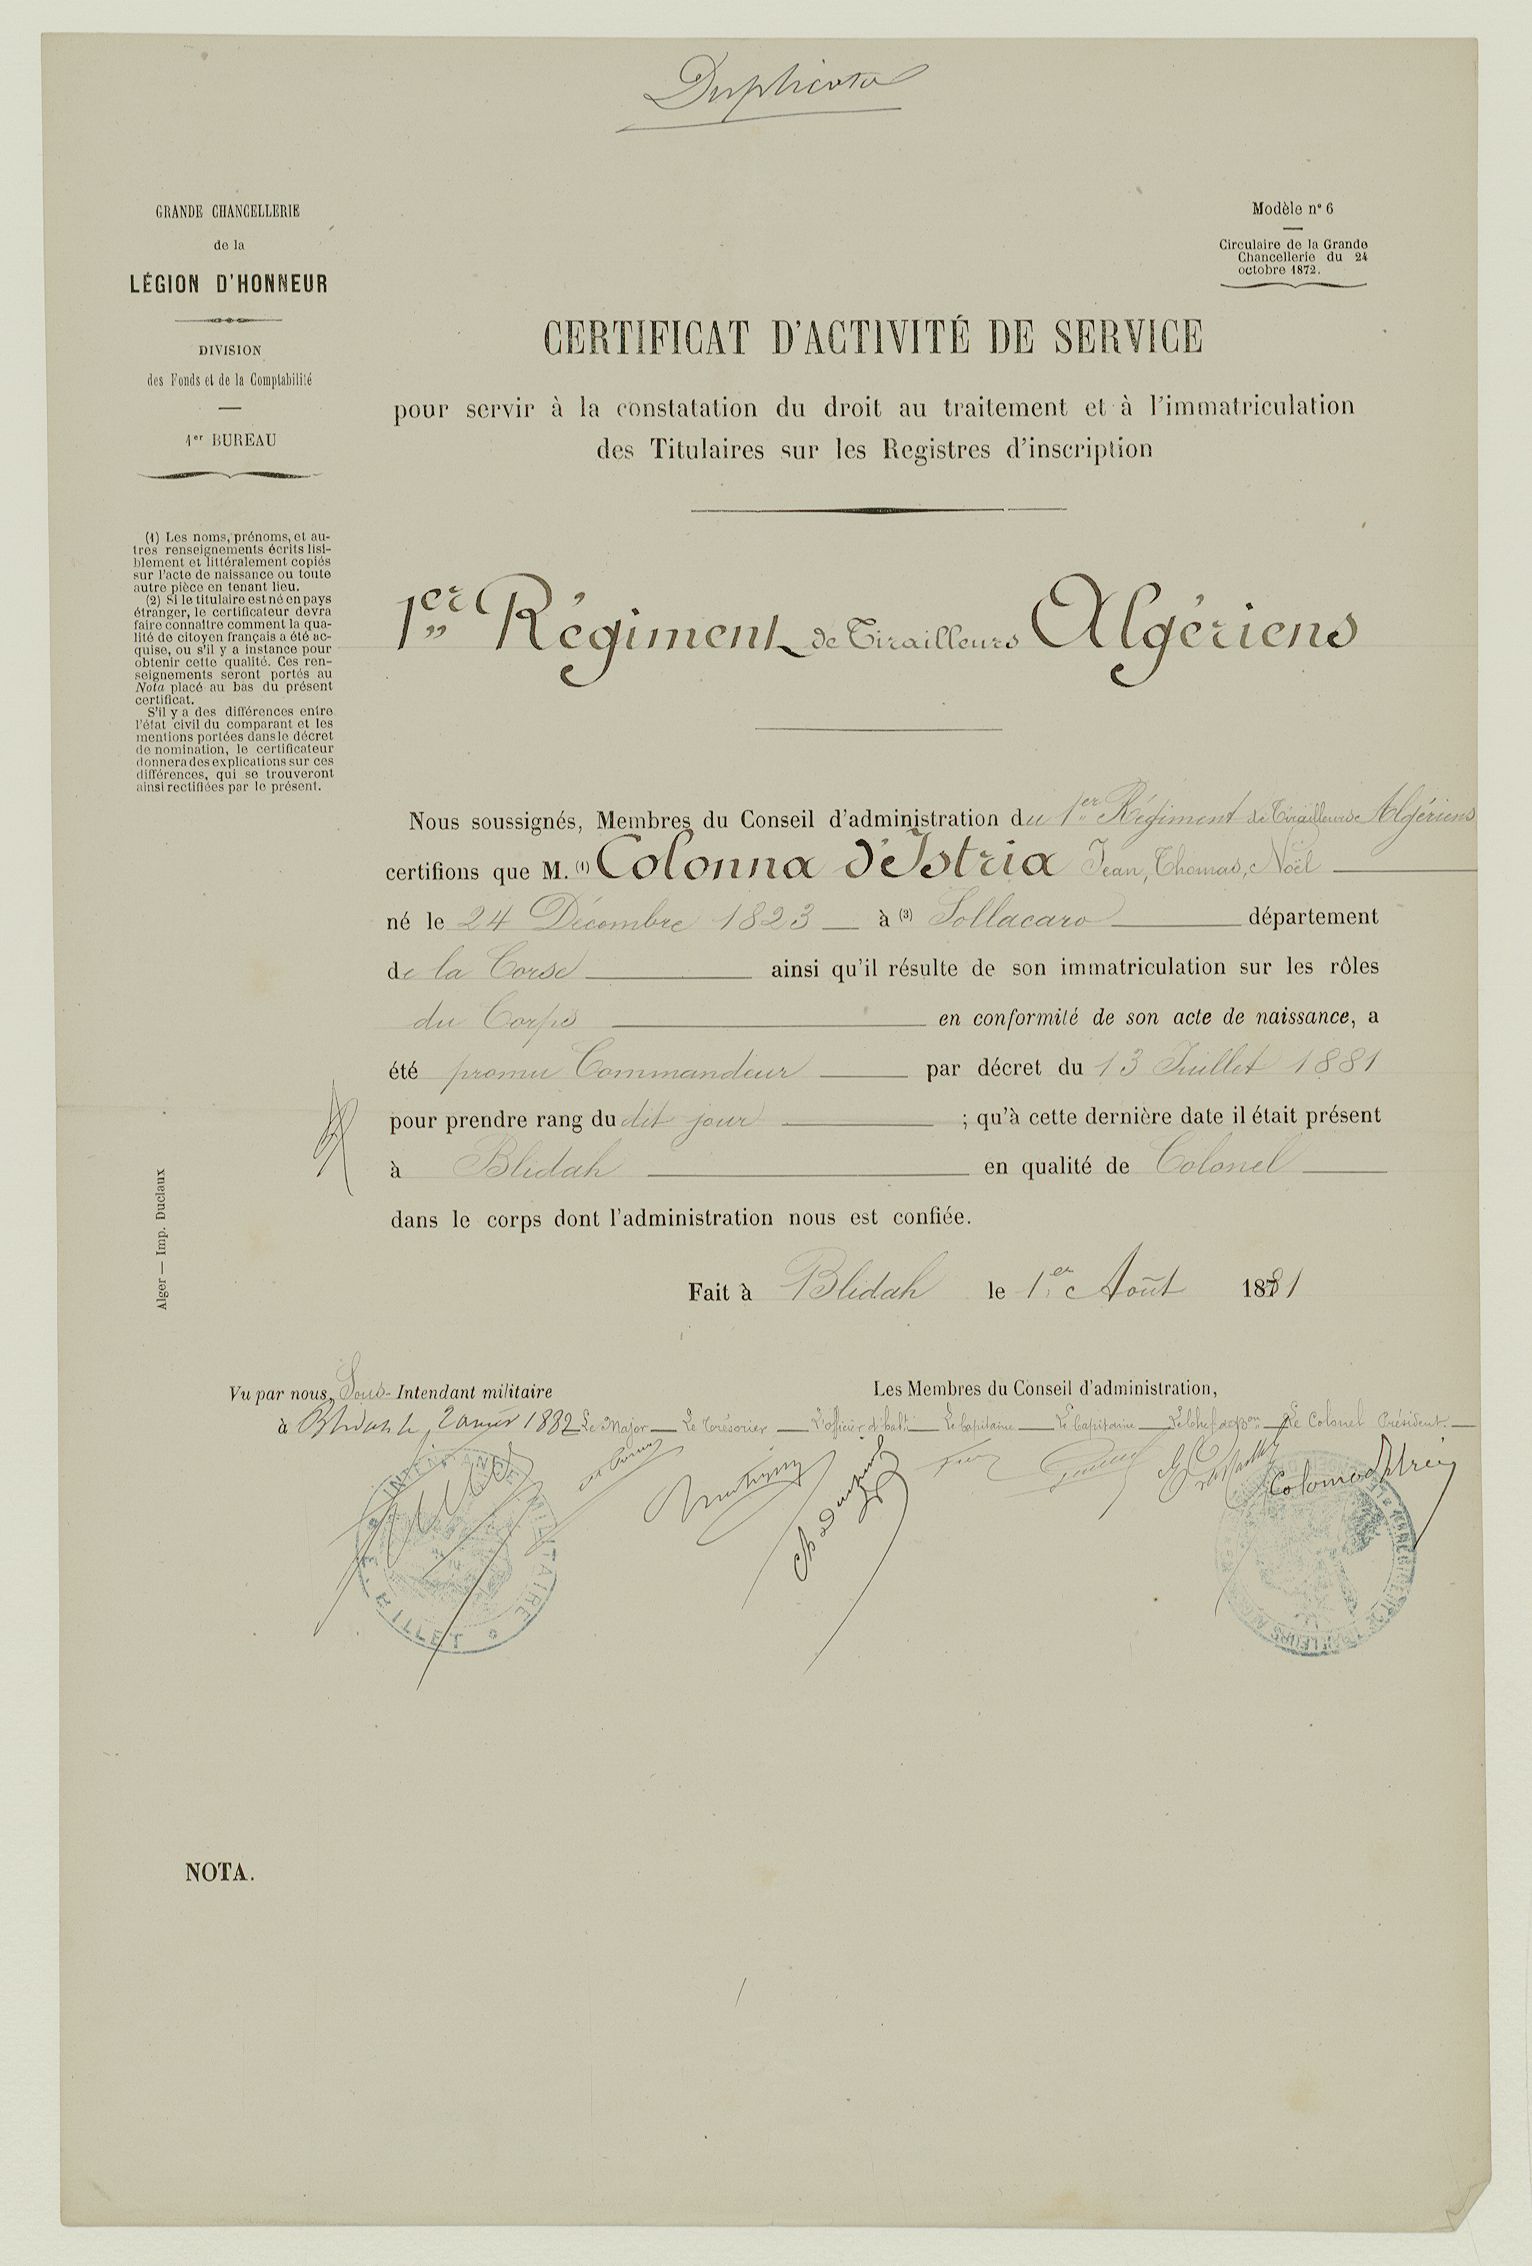 Duplicata
GRANDE CHANCELLERIE
de la
LÉGION D'HONNEUR
DIVISION
des Fonds et de la Comptabilité
1er BUREAU
Modèle n° 6
Circulaire de la Grande
Chancellerie du 24
octobre 1872.
CERTIFICAT D'ACTIVITÉ DE SERVICE
pour servir à la constatation du droit au traitement et à l'immatriculation
des Titulaires sur les Registres d'inscription
(1) Les noms, prénoms, et au-
tres renseignements écrits lisi-
blement et littéralement copiés
sur l'acte de naissance ou toute
autre pièce en tenant lieu.
(2) Si le titulaire est né en pays
étranger, le certificateur devra
faire connaître comment la qua-
lité de citoyen français a été ac-
quise, ou s'il y a instance pour
obtenir cette qualité. Ces ren-
seignements seront portés au
Nota placé au bas du présent
certificat.
S'il y a des différences entre
l'état civil du comparant et les
mentions portées dans le décret
de nomination, le certificateur
donnera des explications sur ces
différences, qui se trouveront
ainsi rectifiées par le présent.
1er Régiment de Tirailleurs Algériens
Nous soussignés, Membres du Conseil d'administration du 1er Régiment de Tirailleurs Algériens
certifions que M. (1) Colonna d'Istria Jean, Thomas, Noël
né le 24 Décembre 1823 à (3) Sollacaro département
de la Corse ainsi qu'il résulte de son immatriculation sur les rôles
du Corps en conformité de son acte de naissance, a
été promu Commandeur par décret du 13 Juillet 1881
pour prendre rang du dit jour ; qu'à cette dernière date il était présent
à Blidah en qualité de Colonel
dans le corps dont l'administration nous est confiée.
Fait à Blidah le 1er Août 1881
Alger — Imp. Duclaux
Vu par nous, Sous-Intendant militaire
à Blidah le 1882
Les Membres du Conseil d'administration,
Le Major — Le Trésorier — L'officier d'habt — Le Capitaine — Le Capitaine — Le Chef de Bon — Le Colonel Président
Colonna d'Istria
INTENDANCE MILITAIRE
BILLET
NOTA.